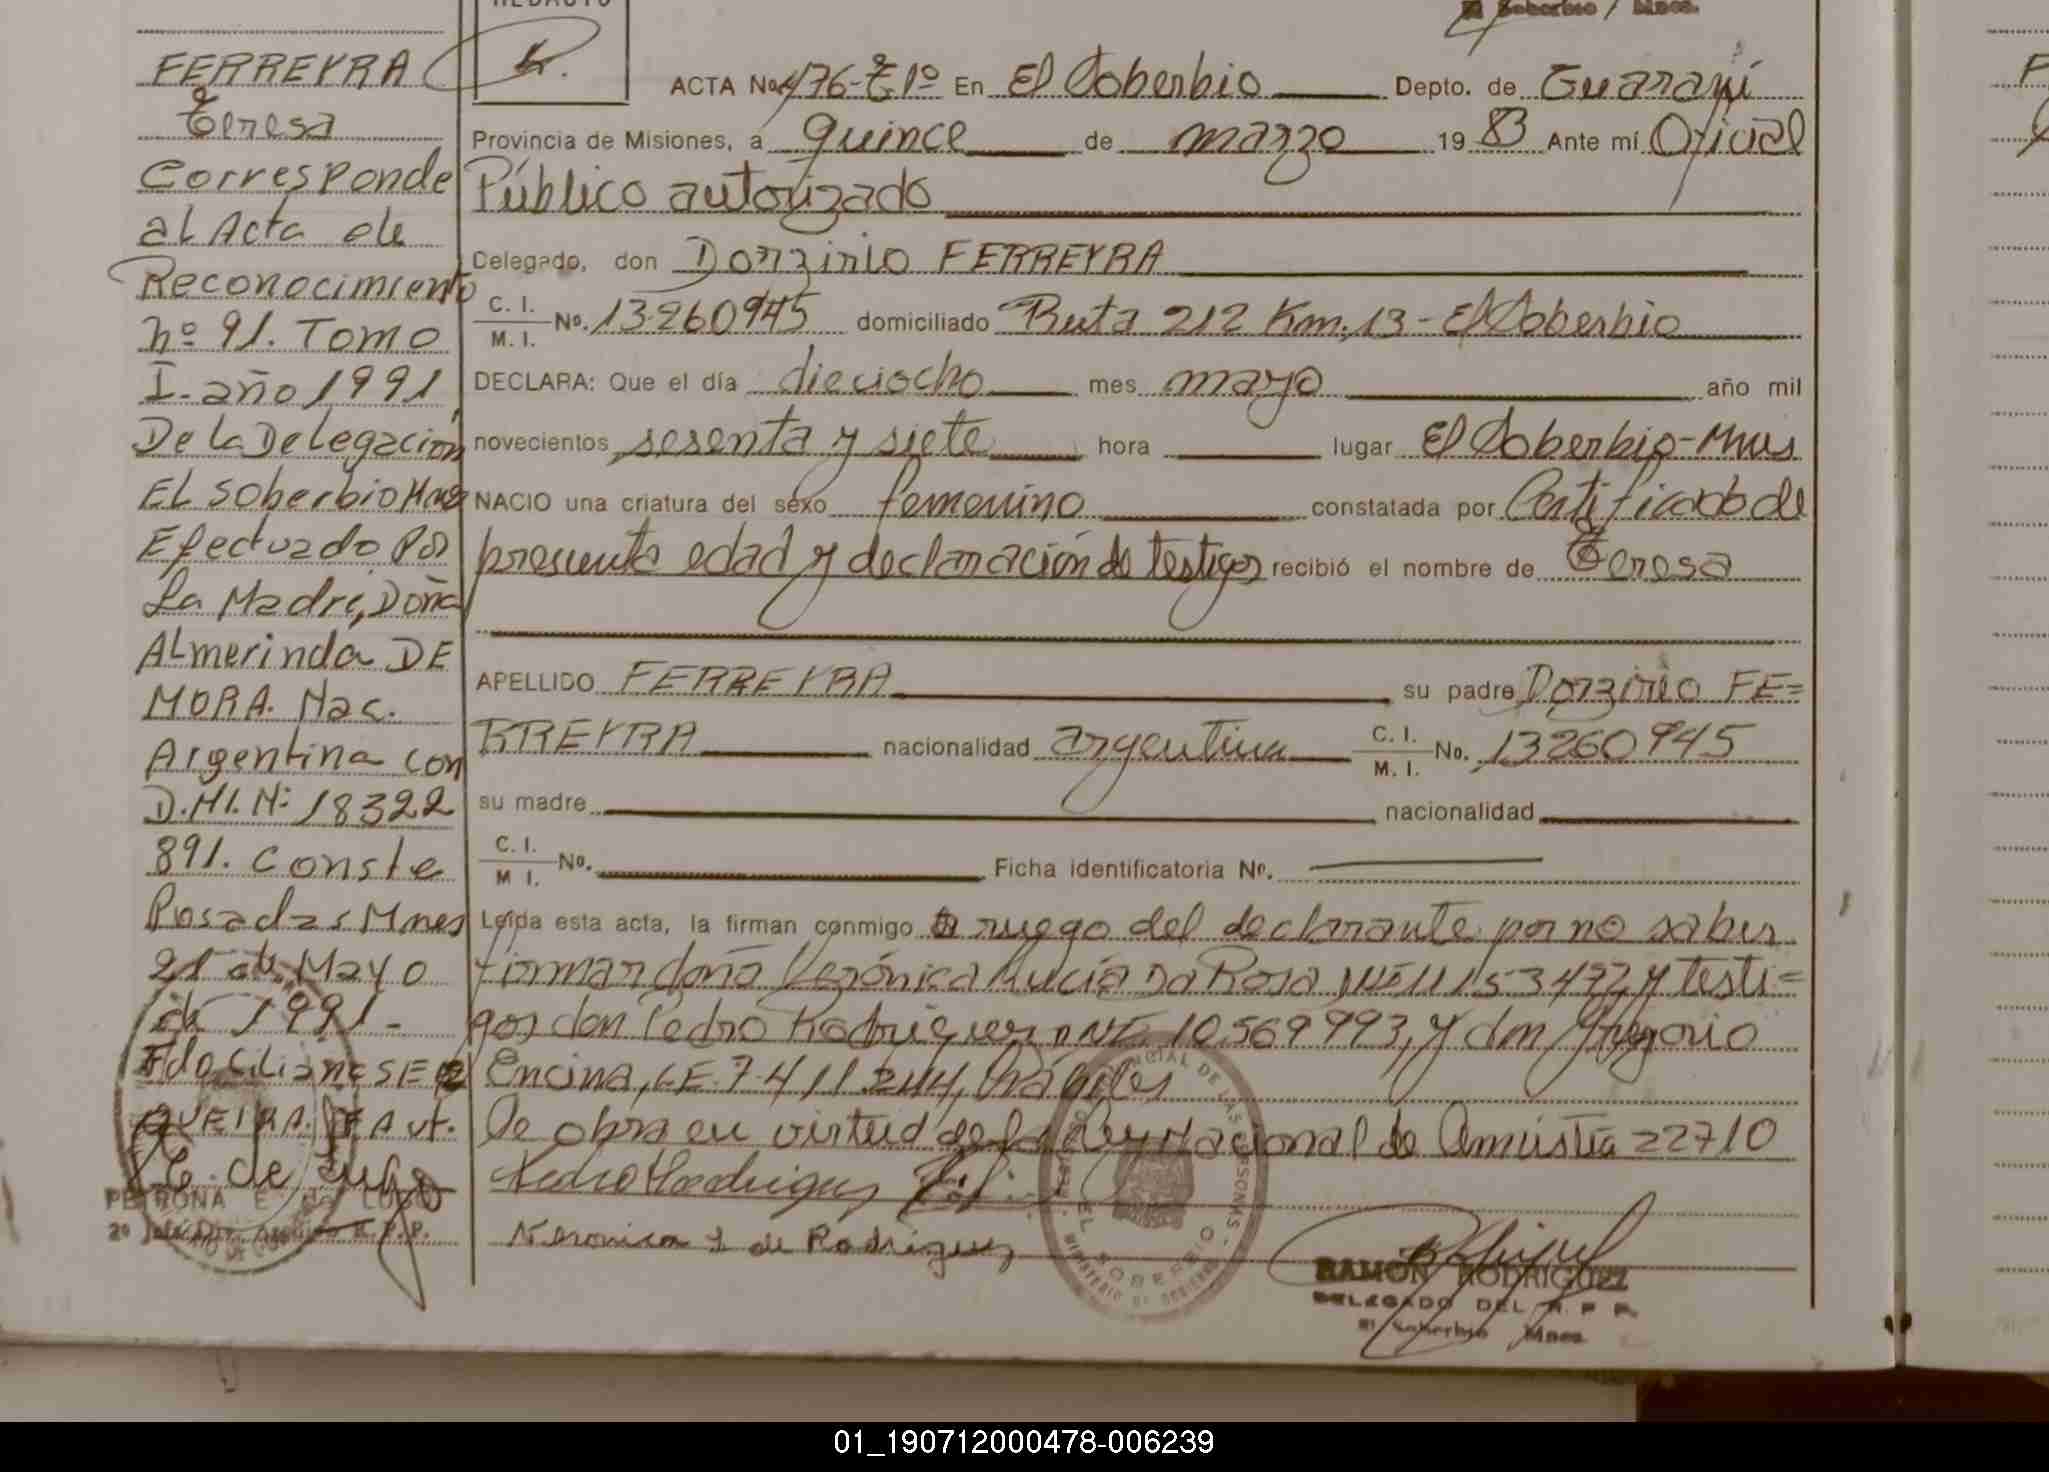 REDACTO
El Soberbio / Mnes.
FERREYRA
Teresa
Corresponde
al Acta de
Reconocimiento
nº 91. Tomo
I. año 1991,
De la Delegación
EL Soberbio Mnes
Efectuado Por
La Madre, Doña
ALmerinda DE
MORA. Nac.
Argentina con
D.N.I. Nº 18322
891. Conste
Posadas Mnes
21 de Mayo
de 1991-
Fdo Ciliano SE
QUEIRA. F Aut.
PETRONA E. de LUGO
ACTA No. 476-Tº1º En El Soberbio Depto. de Guaraní
Provincia de Misiones, a quince de marzo 19 83 Ante mí Oficial
Público autorizado
Delegado, don Dorzirio FERREYRA
C. I. M. I. No. 13260945 domiciliado Ruta 212 Km. 13 - El Soberbio
DECLARA: Que el día dieciocho mes mayo año mil
novecientos sesenta y siete hora lugar El Soberbio-Mnes
NACIO una criatura del sexo femenino constatada por Certificado de
presunta edad y declaración de testigos recibió el nombre de Teresa
APELLIDO FERREYRA su padre Dorzirio FE=
RREYRA nacionalidad argentina C. I. M. I. No. 13260945
su madre nacionalidad
C. I. M I. No. Ficha identificatoria No.
Leída esta acta, la firman conmigo a ruego del declarante por no saber
firmar doña Verónica Lucía Da Rosa DNI 11153472, y testi=
gos don Pedro Rodriguez DNI. 10.569993, y don Gregorio
Encina, L.E. 7.411.244, hábiles
Se obra en virtud de la Ley Nacional de Amnistía 22710
Pedro Rodriguez
Veronica L de Rodriguez
PROVINCIAL DE LAS PERSONAS
EL SOBERBIO
MINISTERIO DE GOBIERNO
RAMÓN RODRIGUEZ
DELEGADO DEL R. P. P.
El Soberbio Mnes.
01_190712000478-006239